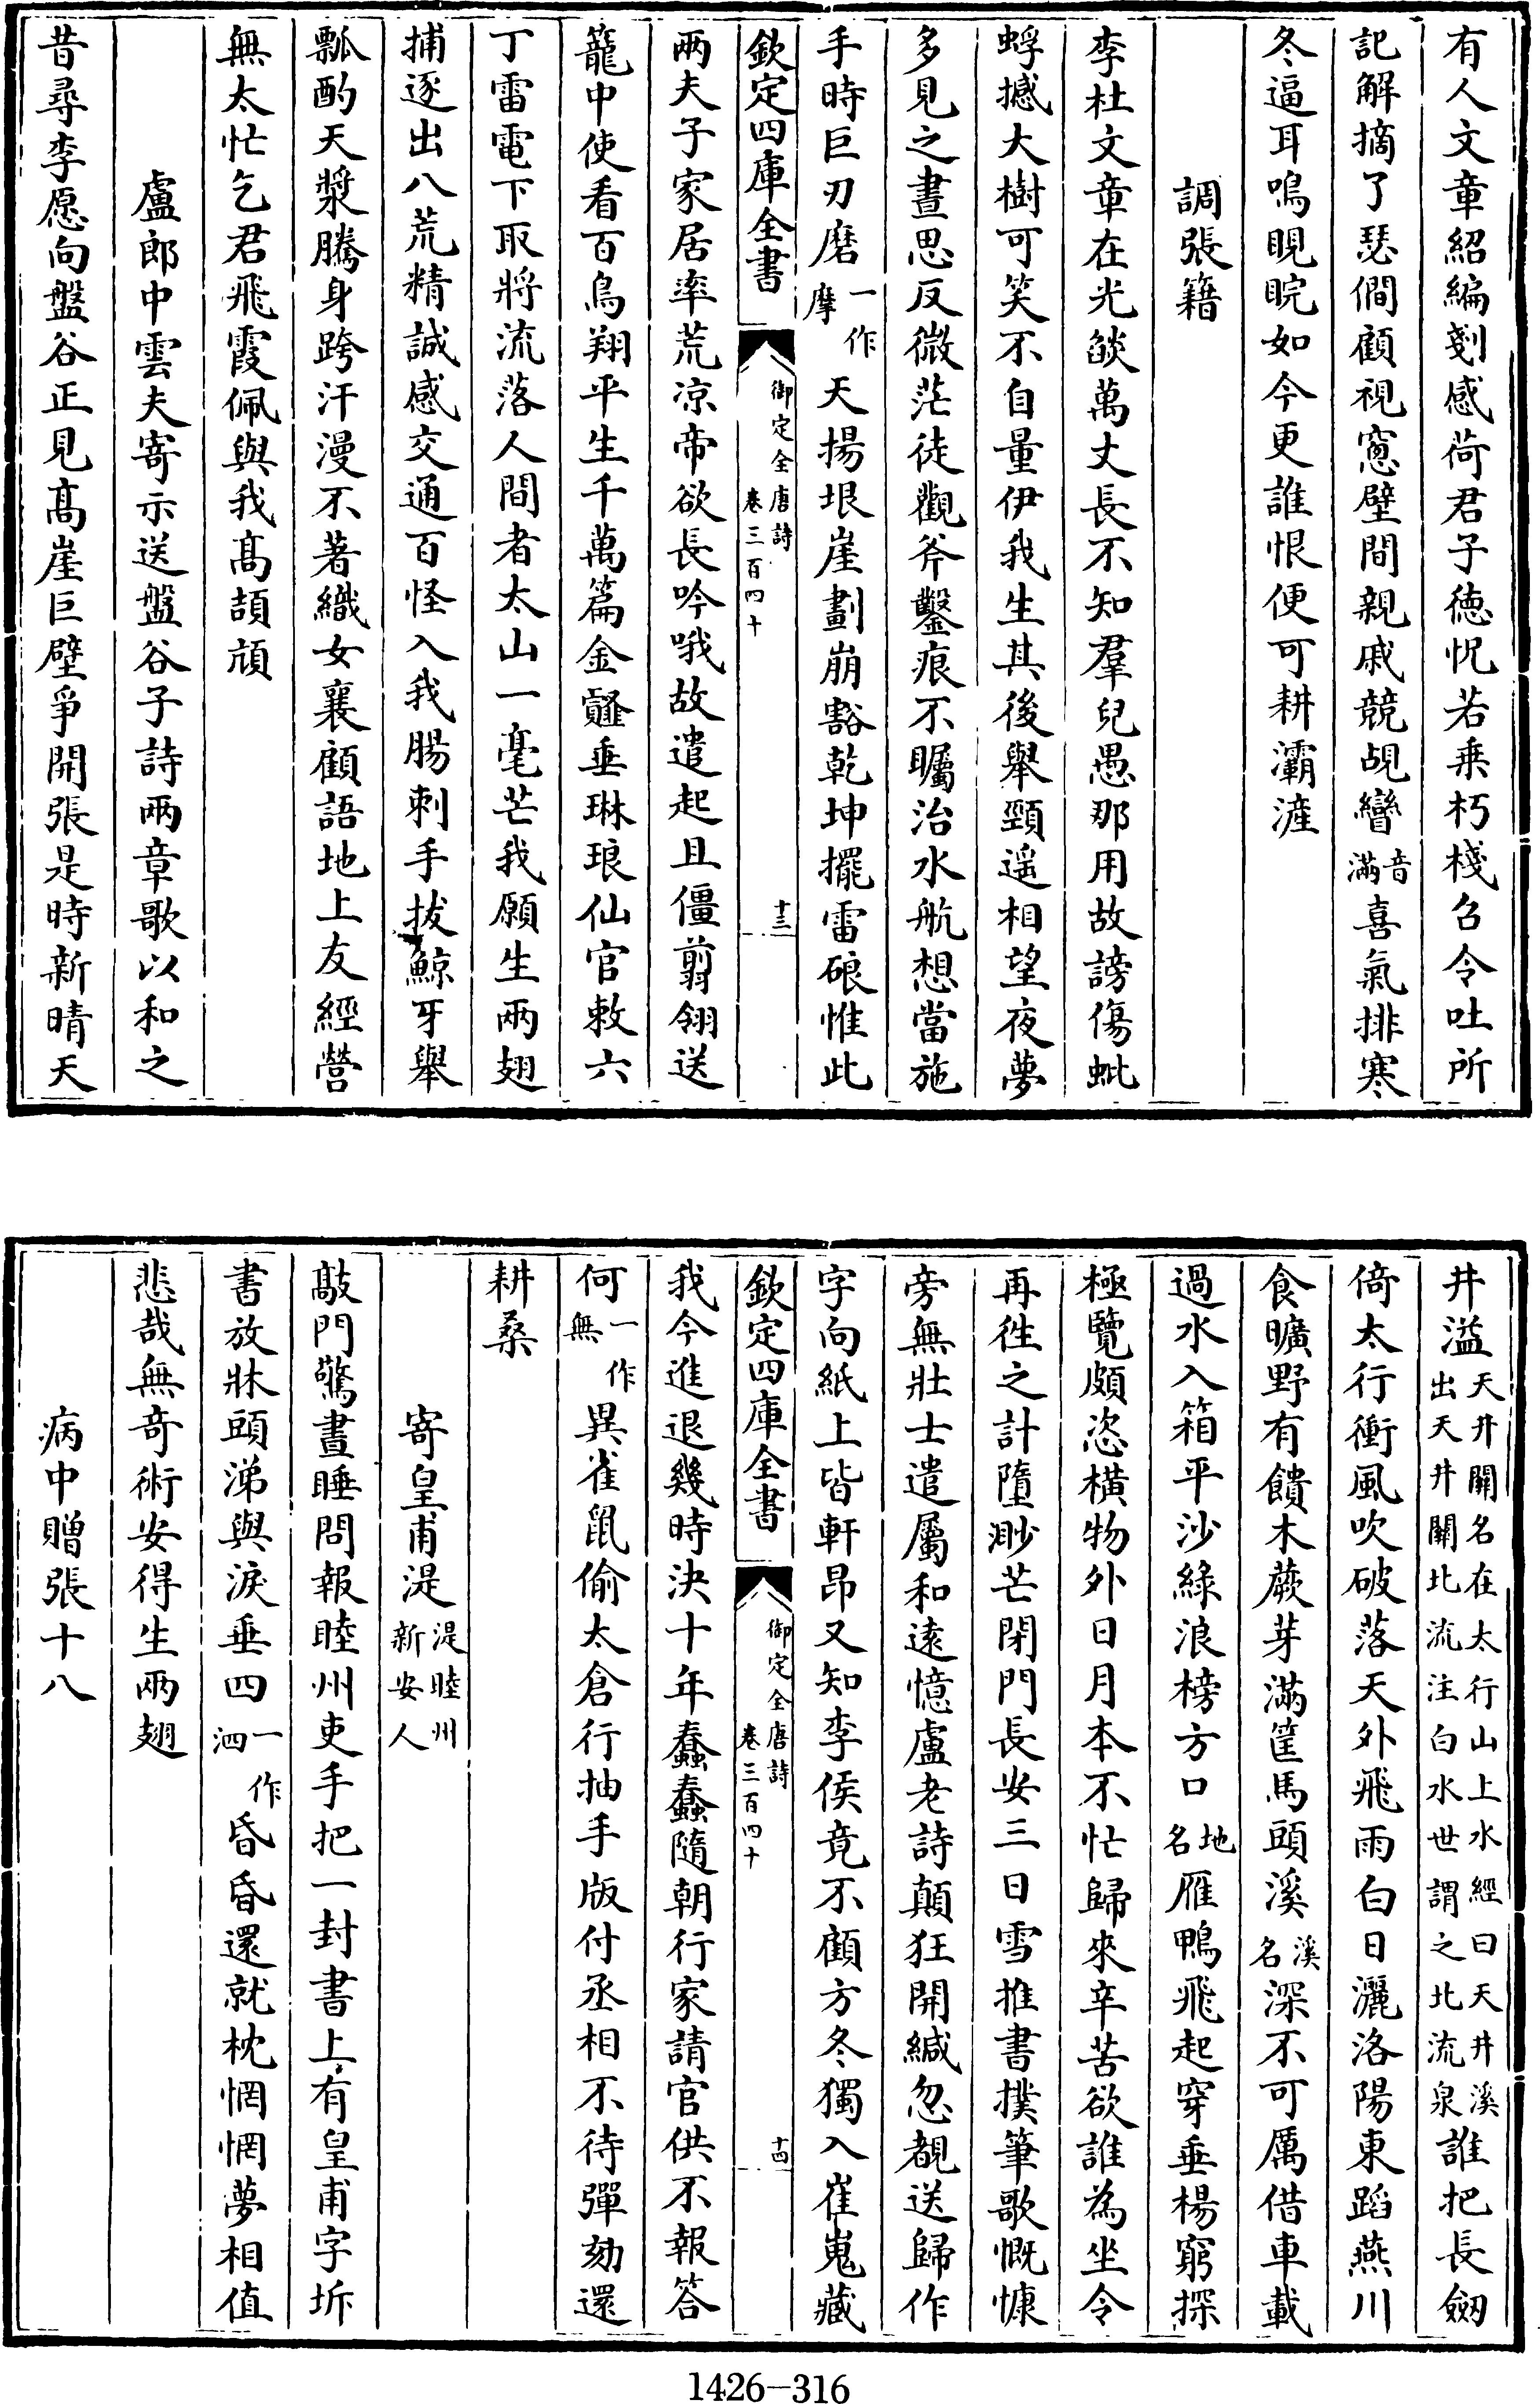 有人文章紹編剗感荷君子徳怳若乗朽棧召令吐所
記解摘了瑟僩顧視窻壁間親戚競覘矕音滿喜氣排寒
冬逼耳鳴睍睆如今更誰恨便可耕灞滻
調張籍
李杜文章在光燄萬丈長不知羣兒愚那用故謗傷蚍
蜉撼大樹可笑不自量伊我生其後舉頸遥相望夜夢
多見之晝思反微茫徒觀斧鑿痕不矚治水航想當施
手時巨刃磨一作摩天揚垠崖劃崩豁乾坤擺雷硠惟此
欽定四庫全書 御定全唐詩 卷三百四十 十三
兩夫子家居率荒凉帝欲長吟哦故遣起且僵剪翎送
籠中使看百鳥翔平生千萬篇金薤垂琳琅仙官敕六
丁雷電下取將流落人間者太山一毫芒我願生兩翅
捕逐出八荒精誠感交通百怪入我腸刺手拔鯨牙舉
瓢酌天漿騰身跨汗漫不著織女襄顧語地上友經營
無太忙乞君飛霞佩與我髙頡頏
盧郎中雲夫寄示送盤谷子詩兩章歌以和之
昔尋李愿向盤谷正見髙崖巨壁爭開張是時新晴天
井溢天井關名在太行山上水經曰天井溪出天井關北流注白水世謂之北流泉誰把長劒
倚太行衝風吹破落天外飛雨白日灑洛陽東蹈燕川
食曠野有饋木蕨芽滿筐馬頭溪溪名深不可厲借車載
過水入箱平沙綠浪榜方口地名雁鴨飛起穿垂楊窮探
極覽頗恣橫物外日月本不忙歸來辛苦欲誰為坐令
再徃之計墮渺芒閉門長安三日雪推書撲筆歌慨慷
旁無壯士遣屬和遠憶盧老詩顛狂開緘忽覩送歸作
字向紙上皆軒昂又知李侯竟不顧方冬獨入崔嵬藏
欽定四庫全書 御定全唐詩 卷三百四十 十四
我今進退幾時決十年蠢蠢隨朝行家請官供不報答
何一作無異雀鼠偷太倉行抽手版付丞相不待彈劾還
耕桑
寄皇甫湜湜睦州新安人
敲門驚晝睡問報睦州吏手把一封書上有皇甫字坼
書放牀頭涕與淚垂四一作泗昏昏還就枕惘惘夢相值
悲哉無奇術安得生兩翅
病中贈張十八
1426-316